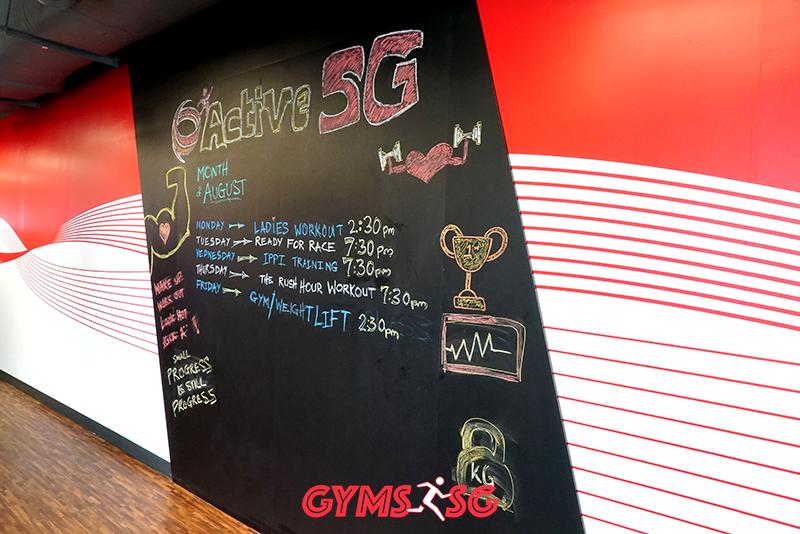 Active SG
MONTH
of AUGUST
MONDAY LADIES WORKOUT 2:30pm
TUESDAY READY FOR RACE 7:30pm
WEDNESDAY IPPI TRAINING 7:30pm
THURSDAY THE RUSH HOUR WORKOUT 7:30pm
FRIDAY GYM/WEIGHT LIFT 2:30pm
1st
MAKE ME
WORK OUT
LOOK HOT
SMALL
PROGRESS
IS STILL
PROGRESS
KG
GYMS SG